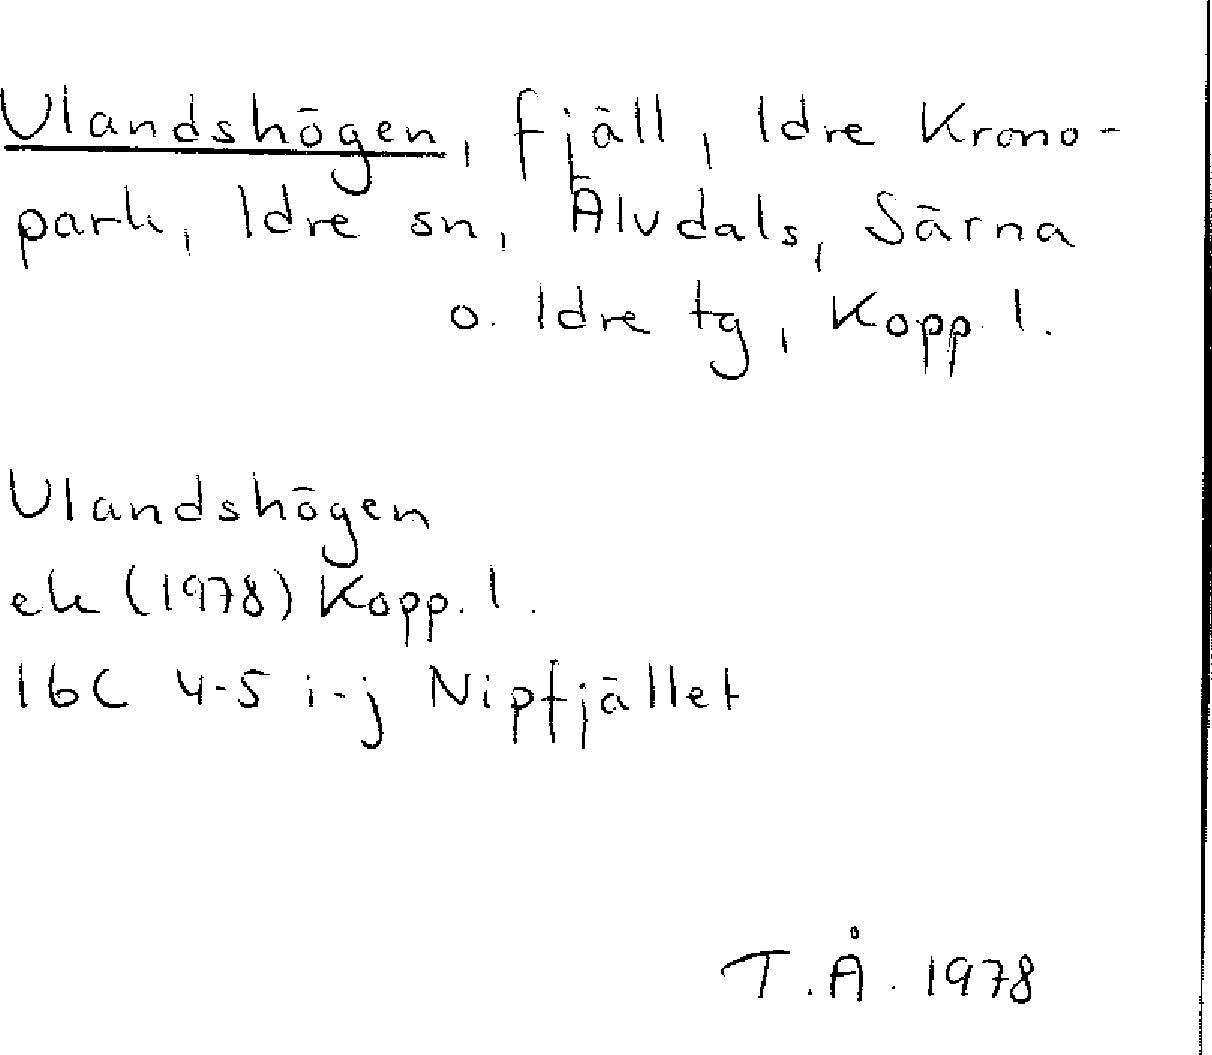 Ulandshögen, fjäll, Idre Krono-
park, Idre sn, Älvdals, Särna
o. Idre tg, Kopp. l.
Ulandshögen
ek (1978) Kopp. l.
16C 4-5 i-j Nipfjället
T.Å. 1978